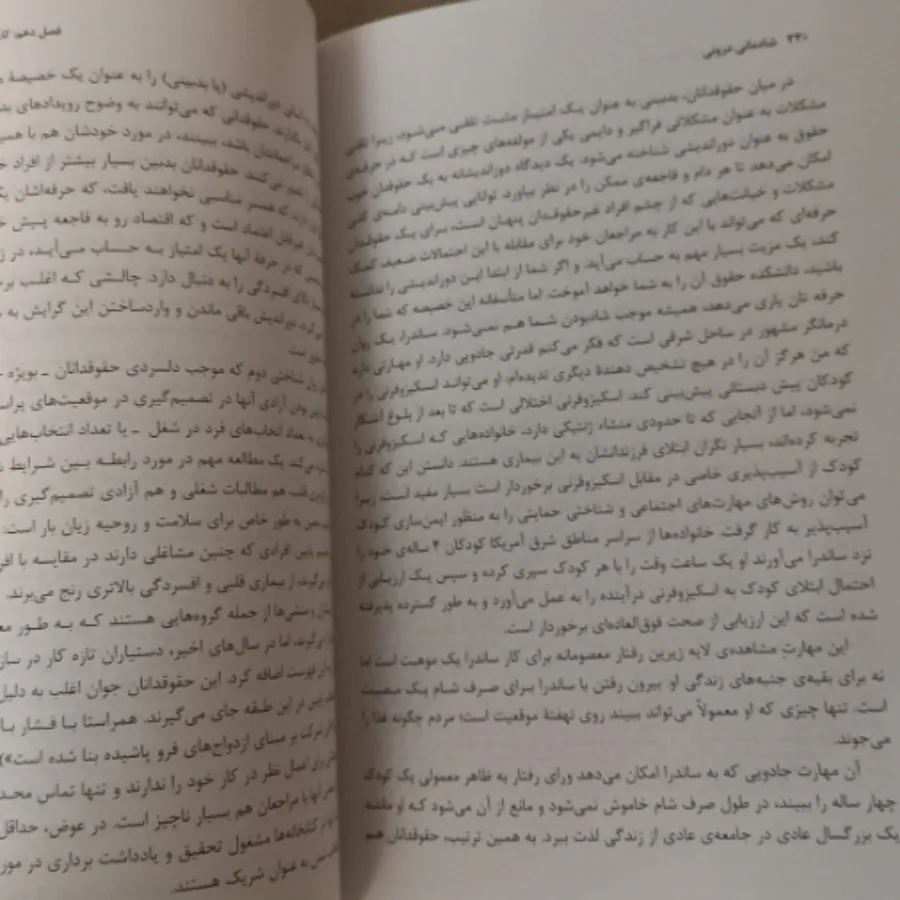 ۲۳۰ شادمانی درونی
در میان حقوقدانان، بدبینی به عنوان یک امتیاز مثبت تلقی می‌شود، زیرا تلقی
مشکلات به عنوان مشکلاتی فراگیر و دایمی یکی از مولفه‌های چیزی است که در حرفه‌ی
حقوق به عنوان دوراندیشی شناخته می‌شود. یک دیدگاه دوراندیشانه به یک حقوقدان خوب
امکان می‌دهد تا هر دام و فاجعه‌ی ممکن را در نظر بیاورد. توانایی پیش‌بینی دامنه‌ی کلی
مشکلات و خیانت‌هایی که از چشم افراد غیرحقوقدان پنهان است، برای یک حقوقدان
حرفه‌ای که می‌تواند با این کار به مراجعان خود برای مقابله با این احتمالات ضعیف کمک
کند، یک مزیت بسیار مهم به حساب می‌آید. و اگر شما از ابتدا این دوراندیشی را نداشته
باشید، دانشکده حقوق آن را به شما خواهد آموخت. اما متأسفانه این خصیصه که شما را در
حرفه تان یاری می‌دهد، همیشه موجب شادبودن شما هم نمی‌شود. ساندرا، یک روان
درمانگر مشهور در ساحل شرقی است که فکر می‌کنم قدرتی جادویی دارد. او مهارتی دارد
که من هرگز آن را در هیچ تشخیص دهندهٔ دیگری ندیده‌ام، او می‌تواند اسکیزوفرنی را در
کودکان پیش دبستانی پیش‌بینی کند. اسکیزوفرنی اختلالی است که تا بعد از بلوغ آشکار
نمی‌شود، اما از آنجایی که تا حدودی منشاء ژنتیکی دارد، خانواده‌هایی که اسکیزوفرنی را
تجربه کرده‌اند، بسیار نگران ابتلای فرزندانشان به این بیماری هستند. دانستن این که کدام
کودک از آسیب‌پذیری خاصی در مقابل اسکیزوفرنی برخوردار است بسیار مفید است، زیرا
می‌توان روش‌های مهارت‌های اجتماعی و شناختی حمایتی را به منظور ایمن‌سازی کودک
آسیب‌پذیر به کار گرفت. خانواده‌ها از سراسر مناطق شرق آمریکا کودکان ۴ ساله‌ی خود را
نزد ساندرا می‌آورند او یک ساعت وقت را با هر کودک سپری کرده و سپس یک ارزیابی از
احتمال ابتلای کودک به اسکیزوفرنی درآینده را به عمل می‌آورد و به طور گسترده پذیرفته
شده است که این ارزیابی از صحت فوق‌العاده‌ای برخوردار است.
این مهارتِ مشاهده‌ی لایه زیرین رفتار معصومانه برای کار ساندرا یک موهبت است اما
نه برای بقیه‌ی جنبه‌های زندگی او. بیرون رفتن با ساندرا برای صرف شام یک مصیبت
است. تنها چیزی که او معمولاً می‌تواند ببیند روی نهفتهٔ موقعیت است؛ مردم چگونه غذا را
می‌جوند.
آن مهارت جادویی که به ساندرا امکان می‌دهد ورای رفتار به ظاهر معمولی یک کودک
چهار ساله را ببیند، در طول صرف شام خاموش نمی‌شود و مانع از آن می‌شود که او مانند
یک بزرگسال عادی در جامعه‌ی عادی از زندگی لذت ببرد. به همین ترتیب، حقوقدانان هم
فصل دهم:
دوراندیشی (یا بدبینی) را به عنوان یک خصیصهٔ
حقوقدانی که می‌توانند به وضوح رویدادهای
باشد، ببینند، در مورد خودشان هم با
می‌کنند. حقوقدانان بدبین بسیار بیشتر از افراد
که همسر مناسبی نخواهند یافت، که حرفه‌اشان
غیرقابل اعتماد است و که اقتصاد رو به فاجعه پیش
که در حرفهٔ آنها یک امتیاز به حساب می‌آید، در
افسردگی را به دنبال دارد. چالشی که اغلب
دوراندیش باقی ماندن و واردساختن این گرایش به
است
شناختی دوم که موجب دلسردی حقوقدانان ـ بویژه
بودن آزادی آنها در تصمیم‌گیری در موقعیت‌های
تعداد انتخاب‌های فرد در شغل ـ یا تعداد انتخاب‌هایی
می‌کند. یک مطالعه مهم در مورد رابطه بین شرایط
هم مطالبات شغلی و هم آزادی تصمیم‌گیری را
به طور خاص برای سلامت و روحیه زیان بار است:
افرادی که چنین مشاغلی دارند در مقایسه با
از بیماری قلبی و افسردگی بالاتری رنج می‌برند.
از جمله گروه‌هایی هستند که به طور
اما در سال‌های اخیر، دستیاران تازه کار در
فهرست اضافه کرد. این حقوقدانان جوان اغلب به دلیل
در این طبقه جای می‌گیرند. همراستا با فشار
بر مبنای ازدواج‌های فرو پاشیده بنا شده است»)
برای اعمال نظر در کار خود را ندارند و تنها تماس
با مراجعان هم بسیار ناچیز است. در عوض، حداقل
کتابخانه‌ها مشغول تحقیق و یادداشت برداری در
به عنوان شریک هستند.